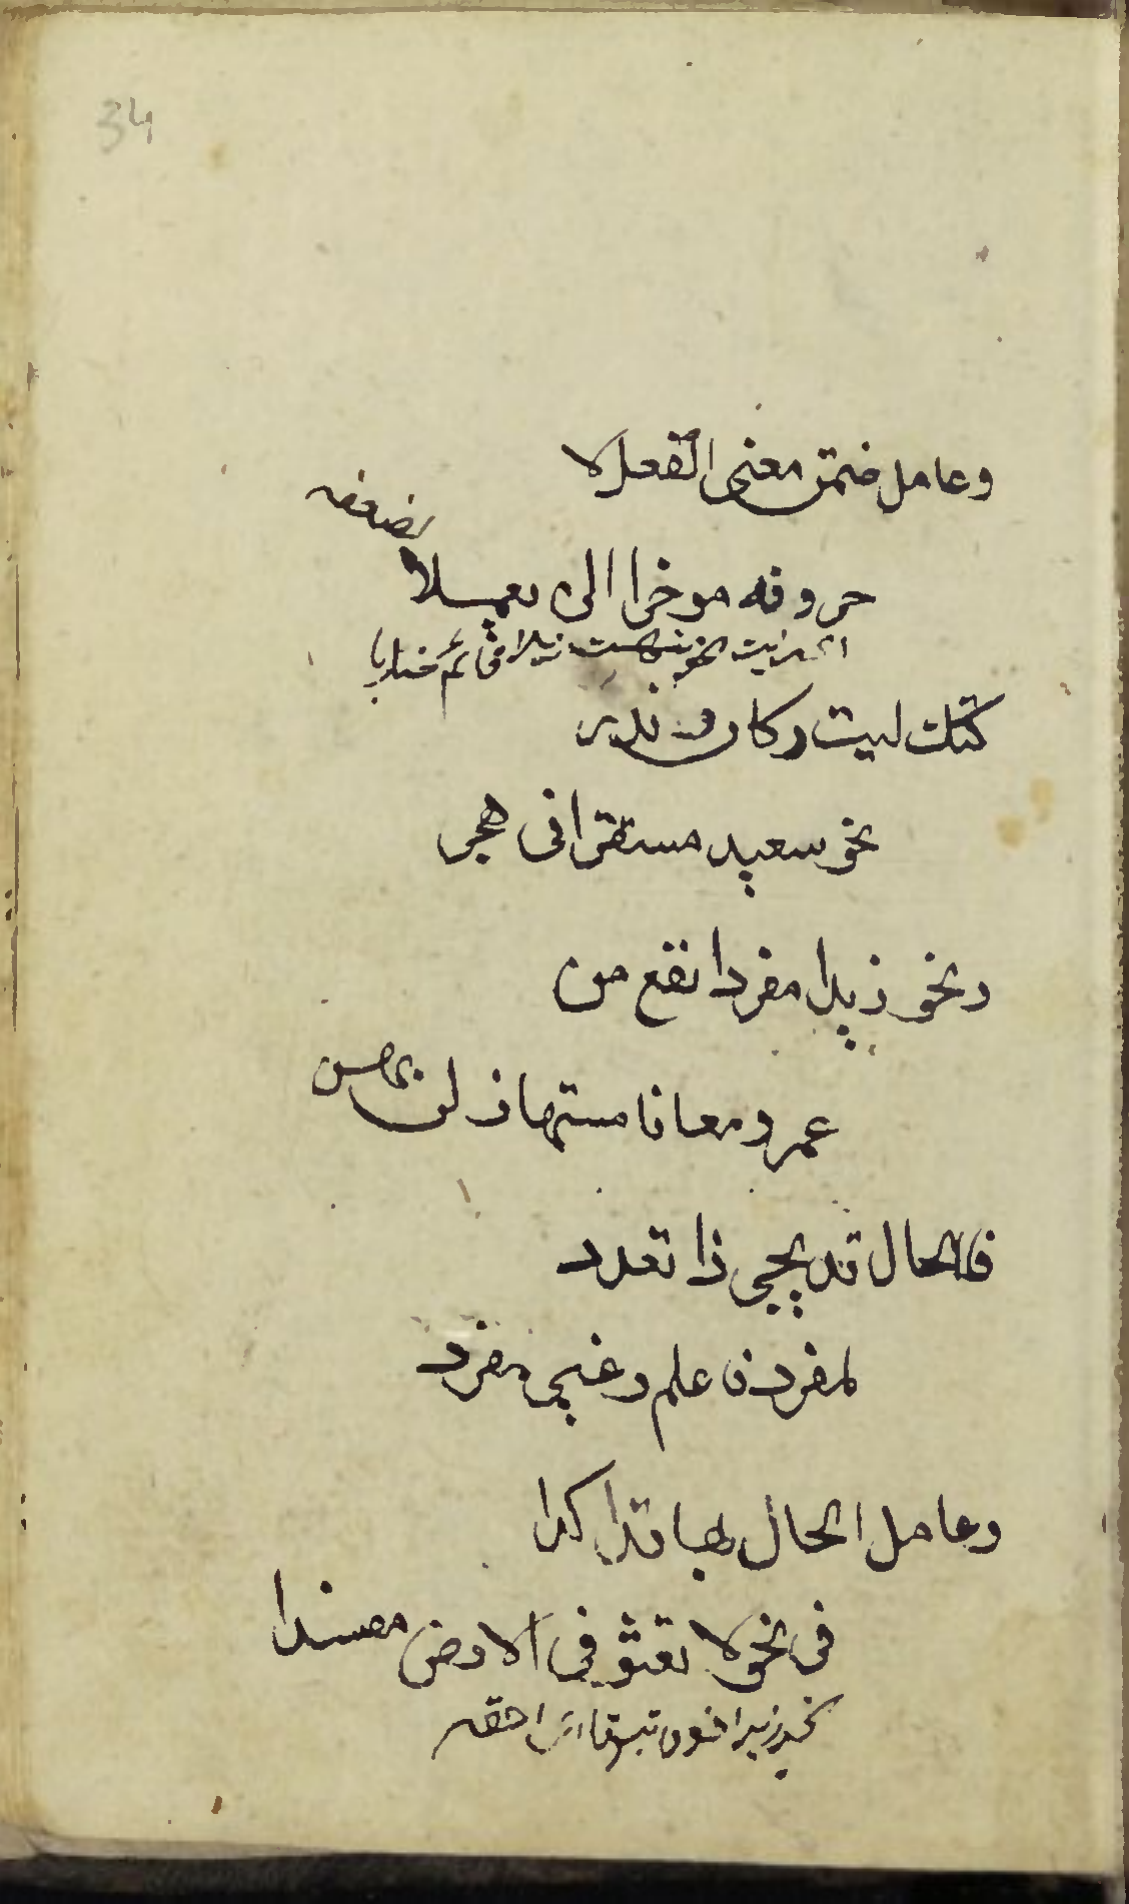 34
وعامل ضمن معنى الفعل لا
لضعفه
حروفه موخرا لن يعملا
كتلك ليت وكان وندر
نحو سعيد مستقرا فى هجر
ونحو زيد مفردا نفع من
عمرو معانا مستهان لن يهن
فالحال قد يجي ذا تعدد
لمفرد فاعلم وغير مفرد
وعامل الحال بها قد اكدا
فى نحو لا تعث فى الارض مفسدا